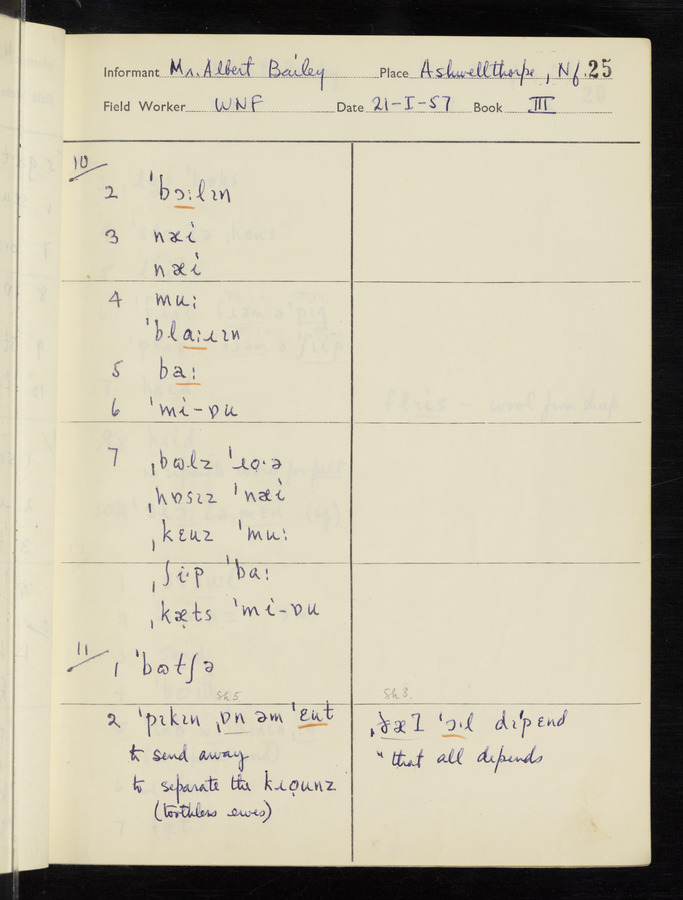 Informant Mr. Albert Bailey Place Ashwellthorpe, Nf. 25
Field Worker WNF Date 21-I-57 Book III
10
2 ˈbɔːlɪn
3 næi
næi
4 muː
ˈblaːɪɪn
5 baː
6 ˈmi-ɒu
7 ˌbʊlz ˈɪọ·ə
ˌhɒsɪz ˈnæi
ˌkɛuz ˈmuː
ˌʃi·p ˈbaː
ˌkæ̣ts ˈmi-ɒu
11
1 ˈbʊtʃə
Sh 5 Sh 8.
2 ˈpɪkɪn ˌɒn əm ˈɛut
to send away
to separate the kɪọunz
(toothless ewes)
ˈɔ·l dɪˈpɛnd
" that all depends